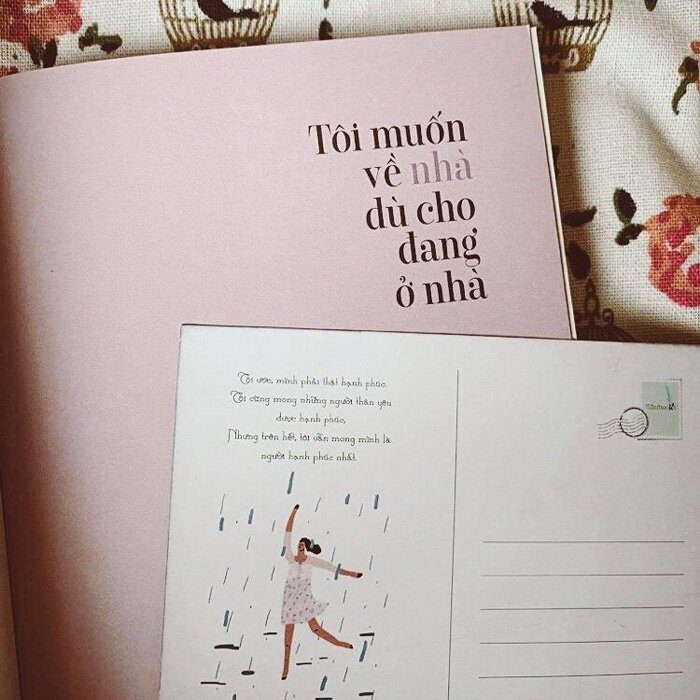 Tôi muốn
về nhà
dù cho
đang
ở nhà
Tôi ước, mình phải thật hạnh phúc.
Tôi cũng mong những người thân yêu
được hạnh phúc,
Nhưng trên hết, tôi vẫn mong mình là
người hạnh phúc nhất.